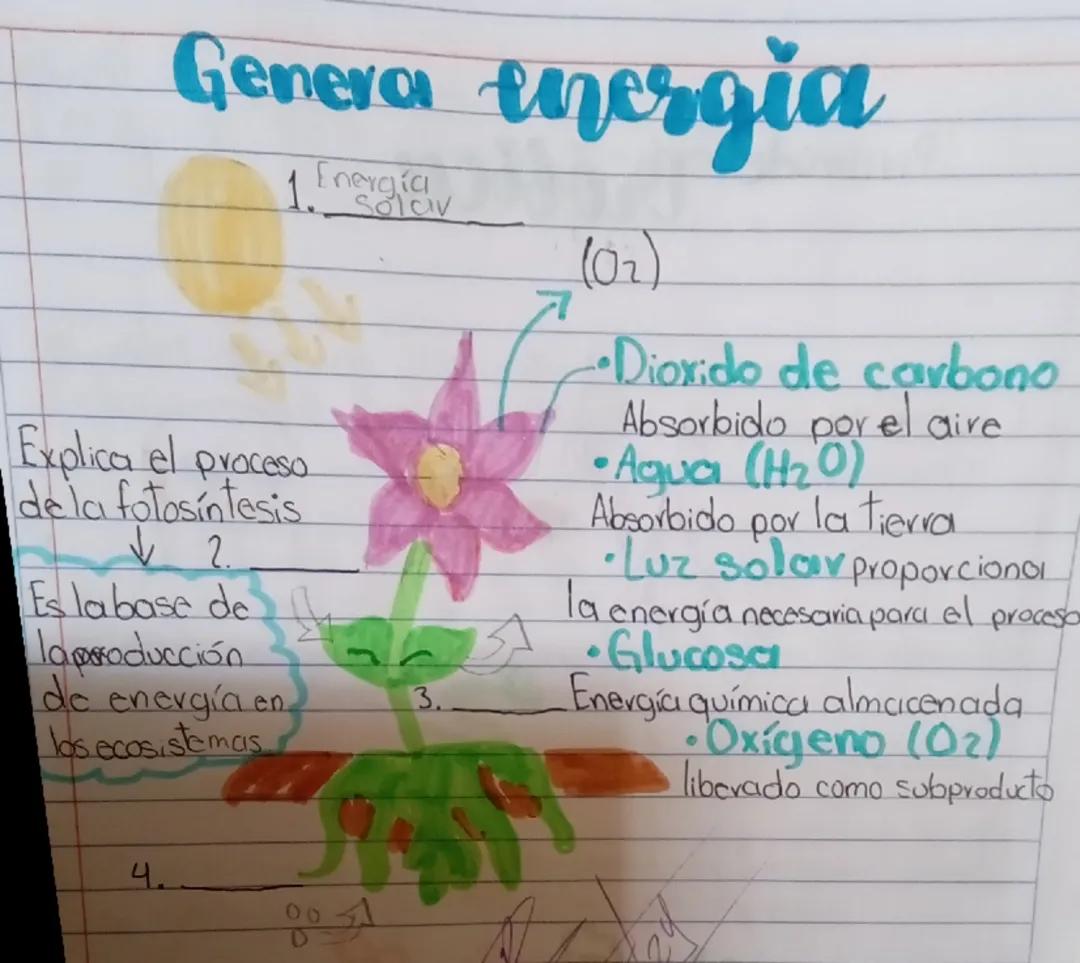 Genera energía
1. Energía
solar
(O2)
•Dioxido de carbono
Absorbido por el aire
•Agua (H2O)
Absorbido por la tierra
•Luz solar proporciona
la energía necesaria para el proceso
•Glucosa
Energía química almacenada
•Oxígeno (O2)
liberado como subproducto
Explica el proceso
de la fotosíntesis
2. ______
Es la base de
la producción
de energía en
los ecosistemas
3. ______
4. ______